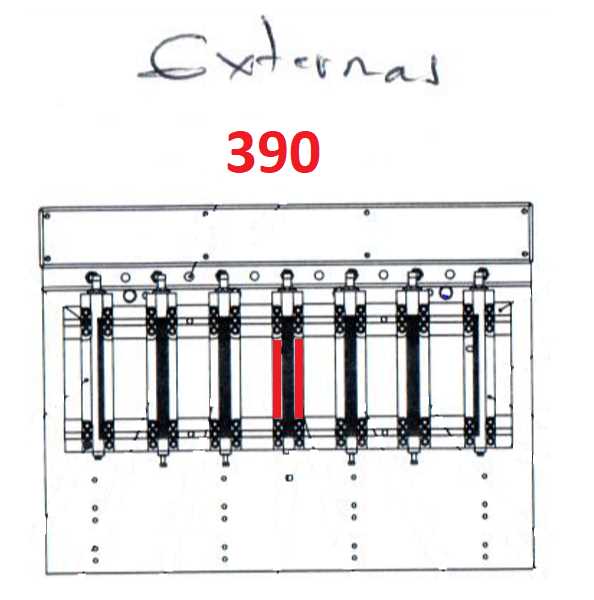 Externas
390